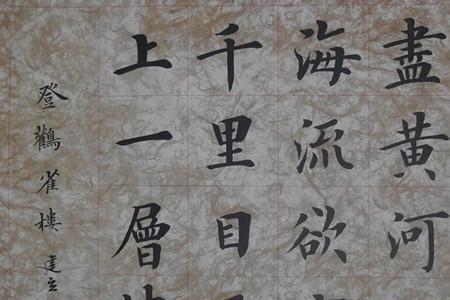 盡黃河
海流欲
千里目
上一層
登鸛雀樓 建立